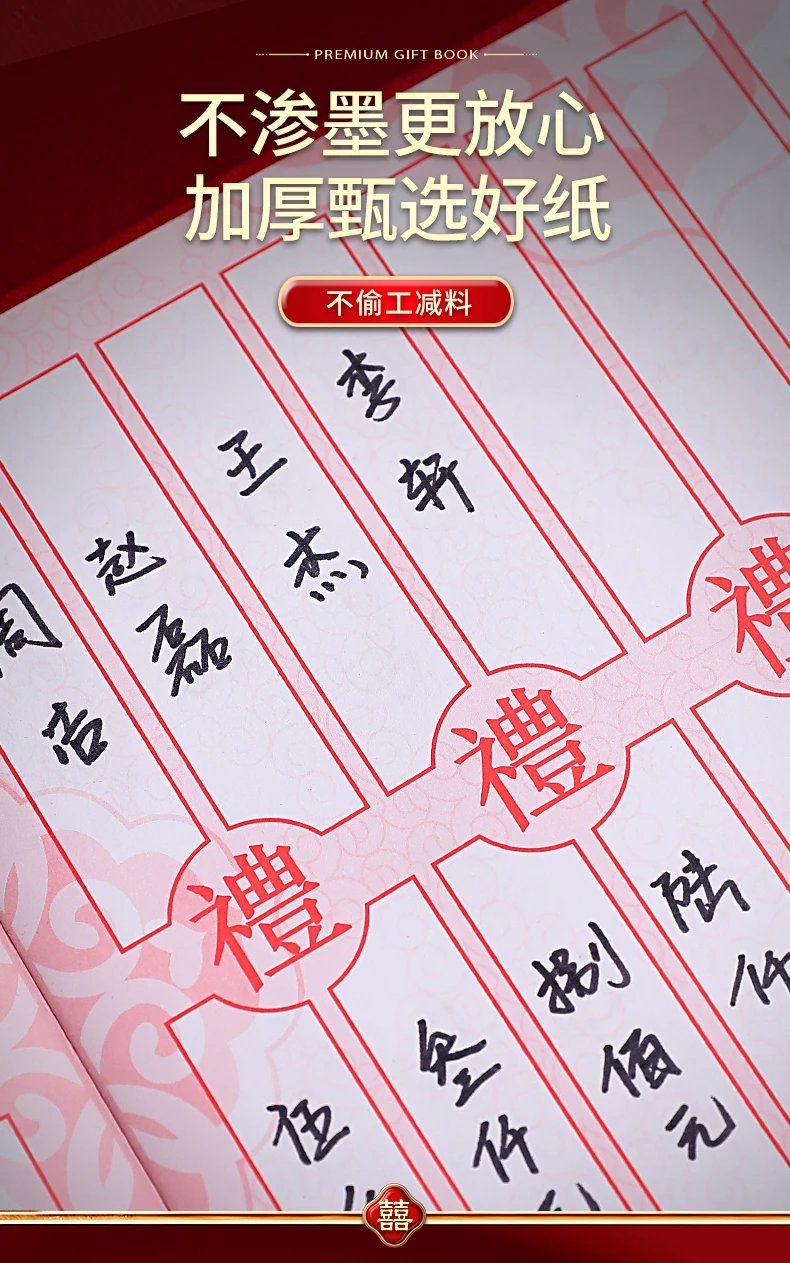 PREMIUM GIFT BOOK
不渗墨更放心
加厚甄选好纸
不偷工减料
李轩
王杰
赵磊
周洁
禮
禮
禮
陆仟
捌佰元
叁仟
伍
囍